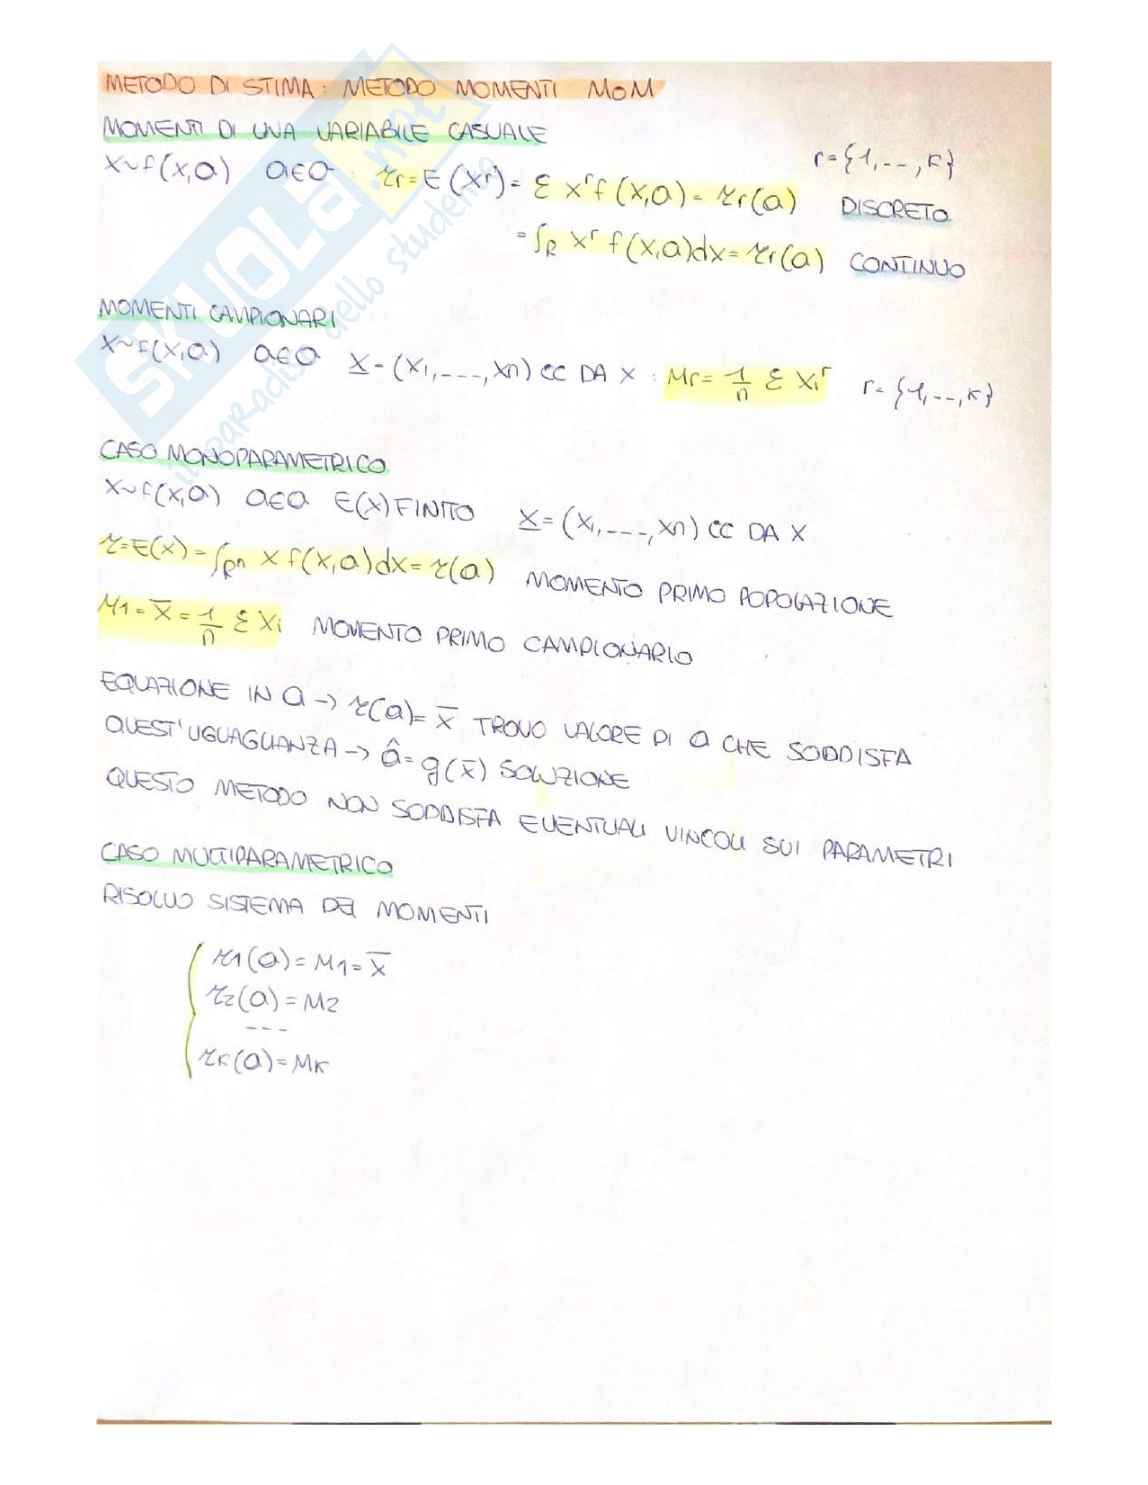 METODO DI STIMA: METODO MOMENTI MOM
MOMENTI DI UNA VARIABILE CASUALE
r={1,---,K}
X~f(x,a) a∈a : τr=E(Xʳ)= Σ xʳf(x,a)= τr(a) DISCRETO
=∫R xʳ f(x,a)dx= τr(a) CONTINUO
MOMENTI CAMPIONARI
X~F(X,a) a∈a X=(X1,----,Xn) CC DA X : Mr= 1/n Σ Xiʳ r={1,--,K}
CASO MONOPARAMETRICO
X~f(x,a) a∈a E(X) FINITO X=(X1,----,Xn) CC DA X
τ=E(X)=∫Rⁿ x f(x,a)dx= τ(a) MOMENTO PRIMO POPOLAZIONE
M1= X̅ = 1/n Σ Xi MOMENTO PRIMO CAMPIONARIO
EQUAZIONE IN a → τ(a)= X̅ TROVO VALORE DI a CHE SODDISFA
QUEST'UGUAGLIANZA → â=g(X̅) SOLUZIONE
QUESTO METODO NON SODDISFA EVENTUALI VINCOLI SUI PARAMETRI
CASO MULTIPARAMETRICO
RISOLVO SISTEMA DEI MOMENTI
τ1(a)=M1= X̅
τ2(a)=M2
---
τK(a)=MK
SKUOLa.net
il paradiso dello studente